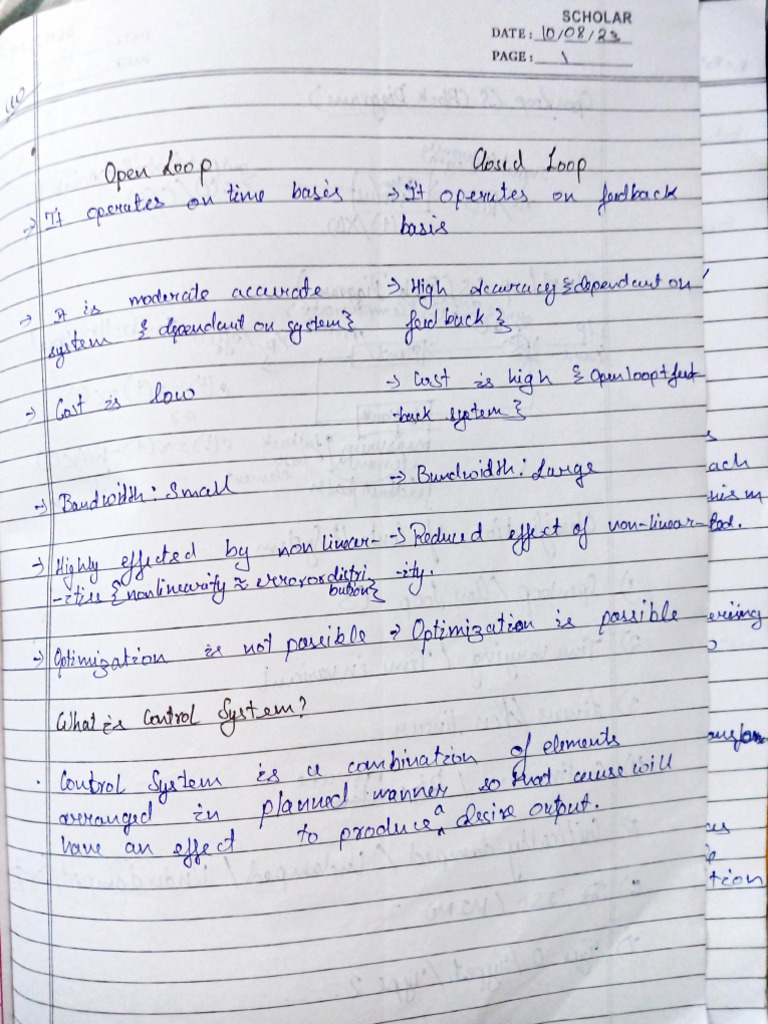 SCHOLAR
DATE: 10/08/23
PAGE: 1
Open Loop
Closed Loop
→ It operates on time basis
→ It operates on feedback
basis
→ It is moderate accurate
system { dependent on system}
→ High accuracy {dependent on
feedback }
→ Cost is low
→ Cost is high {Open loop + feed
-back system}
→ Bandwidth: Small
→ Bandwidth: Large
→ Highly effected by non linear-
-ities {nonlinearity ≈ error or distri
bution}
→ Reduced effect of non-linear-
-ity.
→ Optimization is not possible
→ Optimization is possible
What is Control System?
. Control System is a combination of elements
arranged in planned manner so that cause will
have an effect to produce a desire output.
ach
erising
tion